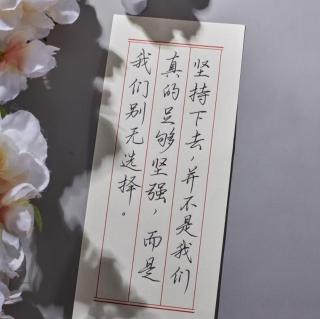 坚持下去，并不是我们
真的足够坚强，而是
我们别无选择。